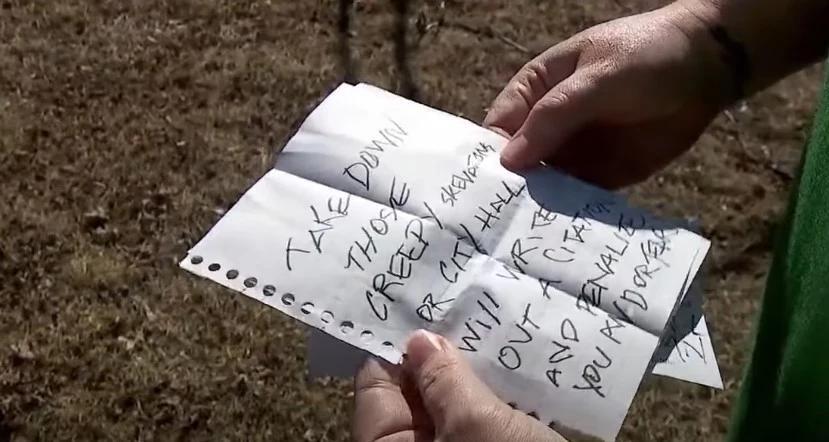 TAKE DOWN
THOSE
CREEPY SKELATONS
OR CITY HALL
Will WRITE
OUT A CITATION
AND PENALIZE
YOU AND OR